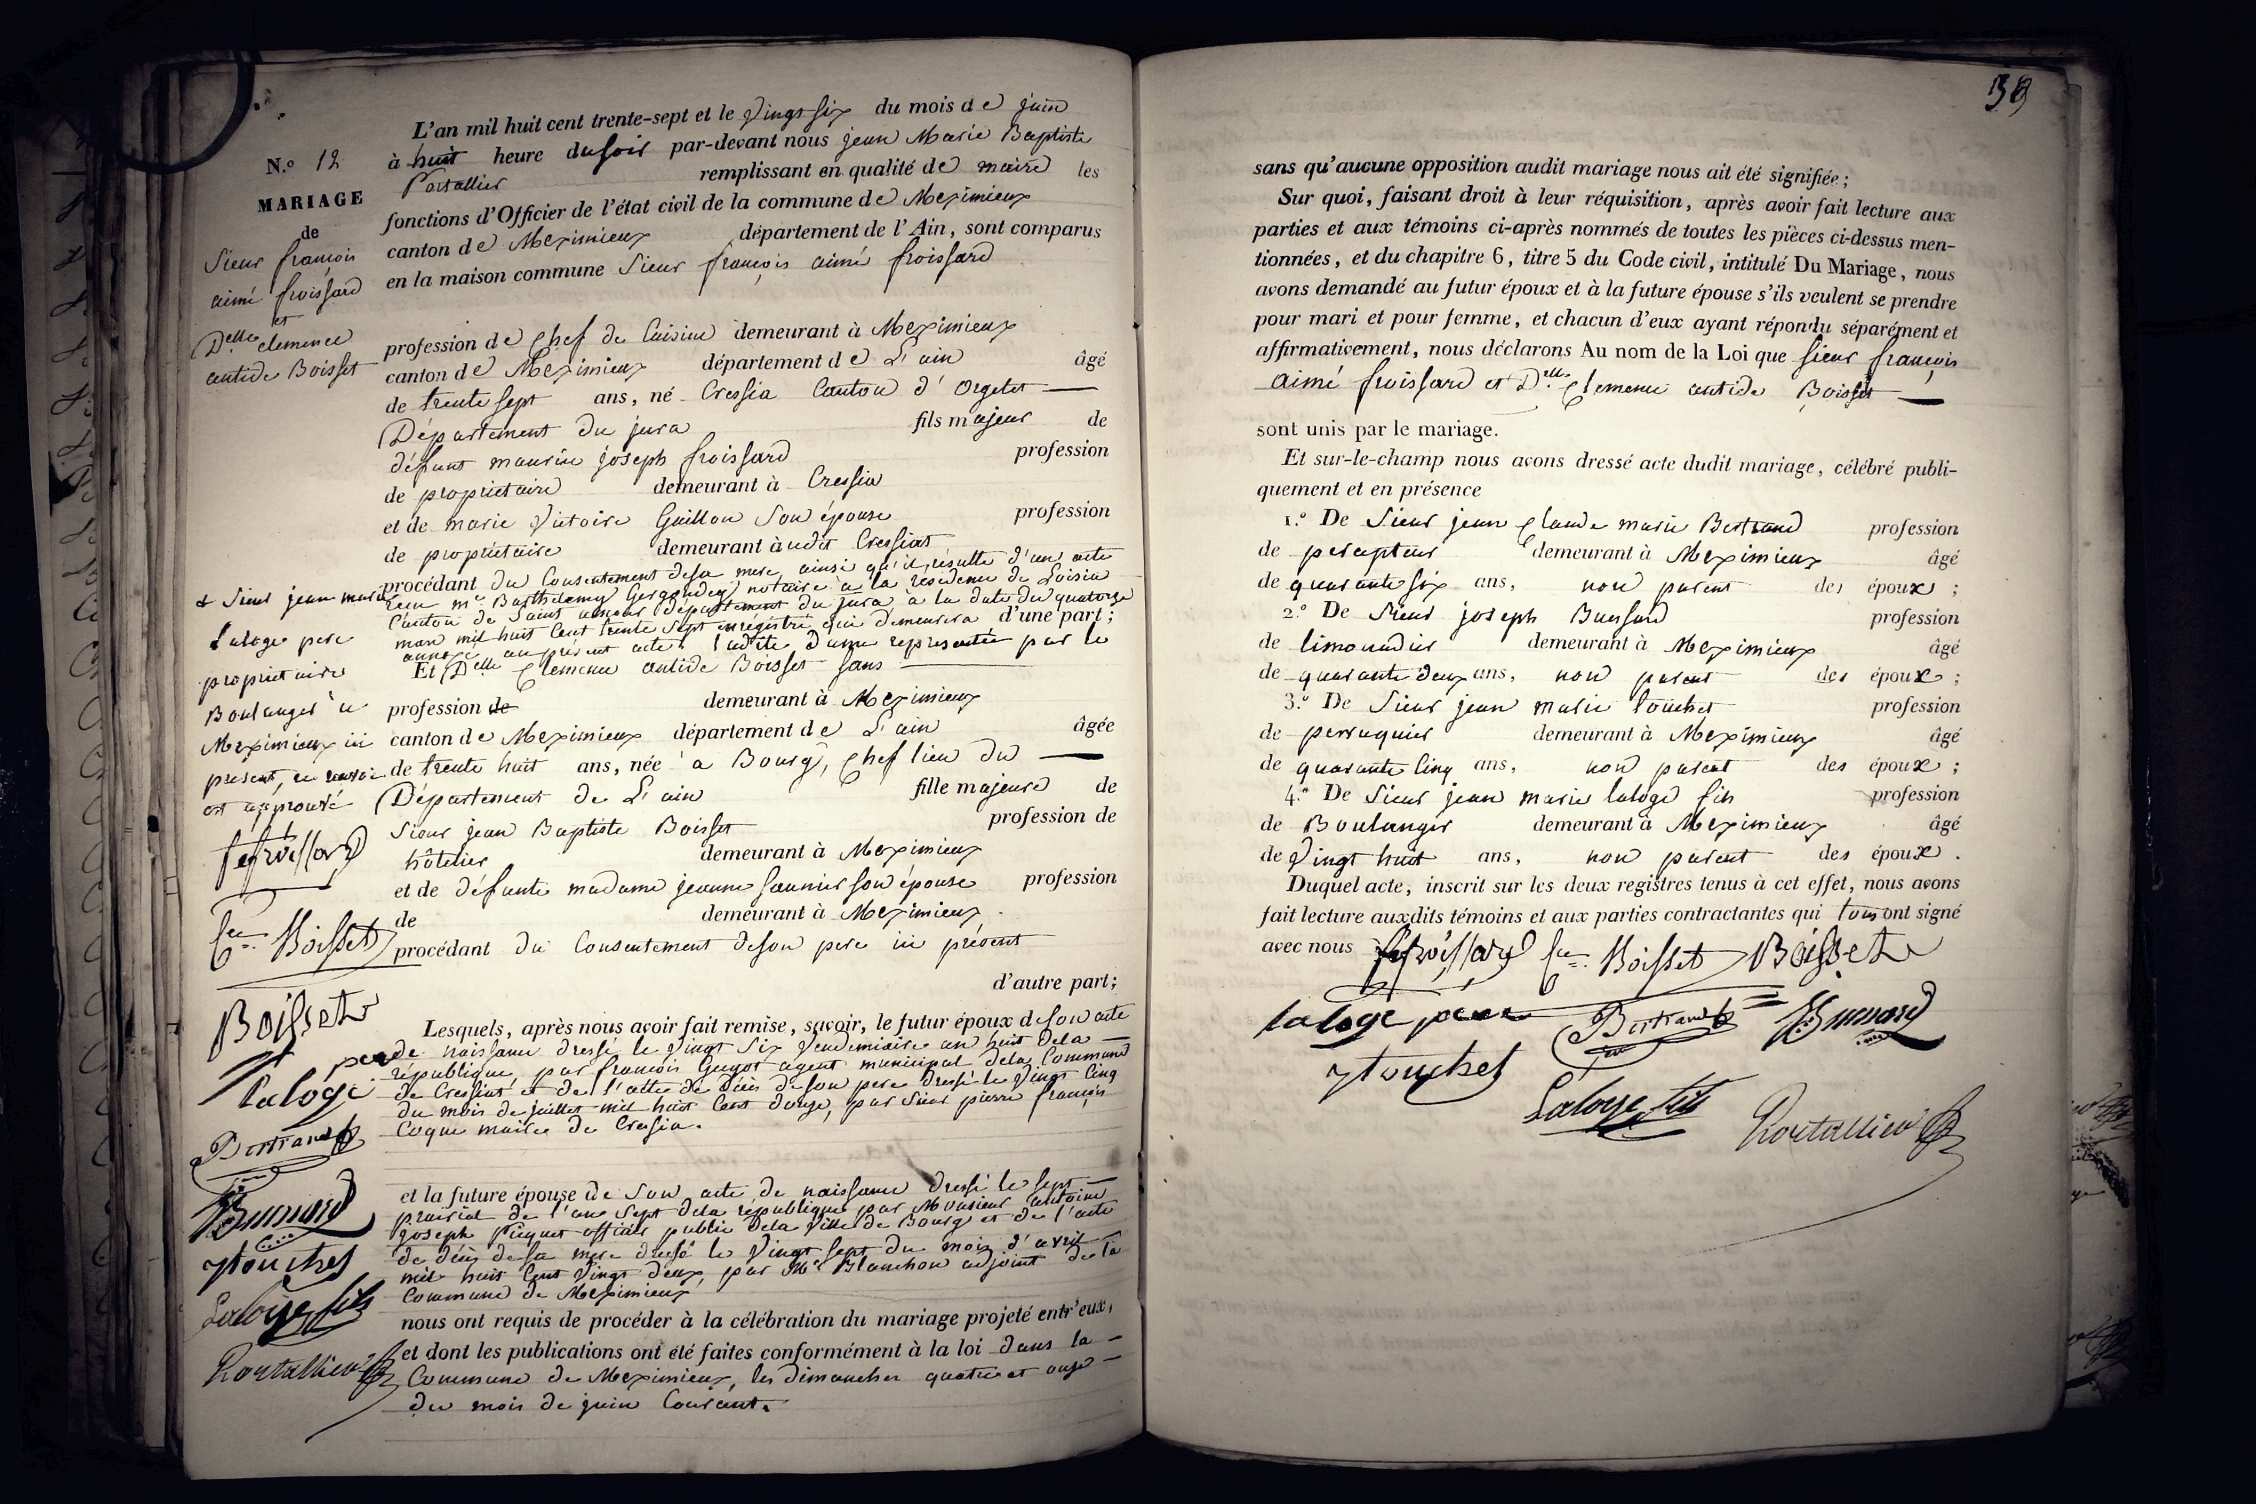 N.º 12
MARIAGE
de
Sieur françois
aimé froissard
et
Delle clemence
antide Boisset
L'an mil huit cent trente-sept et le Vingt six du mois de juin
à huit heure du soir par-devant nous jean Marie Baptiste
Portallier remplissant en qualité de maire les
fonctions d'Officier de l'état civil de la commune de Meximieux
canton de Meximieux département de l'Ain, sont comparus
en la maison commune Sieur françois aimé froissard
profession de Chef de Cuisine demeurant à Meximieux
canton de Meximieux département de L'ain âgé
de trente sept ans, né Cressia Canton d'Orgelet
Département du jura fils majeur de
défunt maurice joseph froissard profession
de propriétaire demeurant à Cressia
et de marie Victoire Guillon son épouse profession
de propriétaire demeurant audit Cressiat
procédant du Consentement de sa mere ainsi qu'il résulte d'un acte
recu me Barthelemy notaire a la residence de Loisia
Canton de Saint amour département du jura, à la date du quatorze
mars mil huit Cent trente sept enregistré qui demeurera d'une part;
annexé au présent acte ladite dame representée par le
Et Delle Clemence antide Boisset sans
profession de demeurant à Meximieux
canton de Meximieux département de L'ain âgée
de trente huit ans, née a Bourg, Chef lieu du
Département de L'ain fille majeure de
Sieur jean Baptiste Boisset profession de
hôtelier demeurant à Meximieux
et de défunte madame jeanne Saunier son épouse profession
de demeurant à Meximieux
procédant du Consentement de son pere ici présent
d'autre part;
Lesquels, après nous avoir fait remise, savoir, le futur époux de son acte
de naissance dressé le Vingt six Vendemiaire an huit de la
république, par françois Guyot agent municipal de la Commune
de Cressiat et de l'acte de décès de son pere dressé le Vingt Cinq
du mois de juillet mil huit Cent douze, par Sieur pierre françois
Coque maire de Cressia.
et la future épouse de son acte de naissance dressé le sept
prairial de l'an sept de la république par Monsieur antoine
joseph Piquet officier public de la Ville de Bourg et de l'acte
de décès de sa mere dressé le Vingt sept du mois d'avril
mil huit Cent Vingt deux, par Mr Blanchon adjoint de la
Commune de Meximieux
nous ont requis de procéder à la célébration du mariage projeté entr'eux,
et dont les publications ont été faites conformément à la loi dans la
Commune de Meximieux, les dimanches quatre et onze
du mois de juin Courant.
+ Sieur jean marie
Laloge pere
propriétaire
Boulanger à
Meximieux ici
présent, ce renvoi
est approuvé
f a froissard
Cce Boisset
Boisset
Laloge pere
Bertrand
Bussard
Touchet
Laloge fils
Portallier
38
sans qu'aucune opposition audit mariage nous ait été signifiée;
Sur quoi, faisant droit à leur réquisition, après avoir fait lecture aux
parties et aux témoins ci-après nommés de toutes les pièces ci-dessus men-
tionnées, et du chapitre 6, titre 5 du Code civil, intitulé Du Mariage, nous
avons demandé au futur époux et à la future épouse s'ils veulent se prendre
pour mari et pour femme, et chacun d'eux ayant répondu séparément et
affirmativement, nous déclarons Au nom de la Loi que Sieur françois
aimé froissard et Delle Clemence antide Boisset
sont unis par le mariage.
Et sur-le-champ nous avons dressé acte dudit mariage, célébré publi-
quement et en présence
1.º De Sieur jean Claude marie Bertrand profession
de percepteur demeurant à Meximieux âgé
de quarante six ans, non parent des époux;
2.º De Sieur joseph Bussard profession
de limonadier demeurant à Meximieux âgé
de quarante deux ans, non parent des époux;
3.º De Sieur jean marie Touchet profession
de perruquier demeurant à Meximieux âgé
de quarante Cinq ans, non parent des époux;
4.º De Sieur jean marie Laloge fils profession
de Boulanger demeurant à Meximieux âgé
de Vingt huit ans, non parent des époux.
Duquel acte, inscrit sur les deux registres tenus à cet effet, nous avons
fait lecture auxdits témoins et aux parties contractantes qui tous ont signé
avec nous f a froissard Cce Boisset Boisset
Laloge pere Bertrand Bussard
Touchet
Laloge fils Portallier